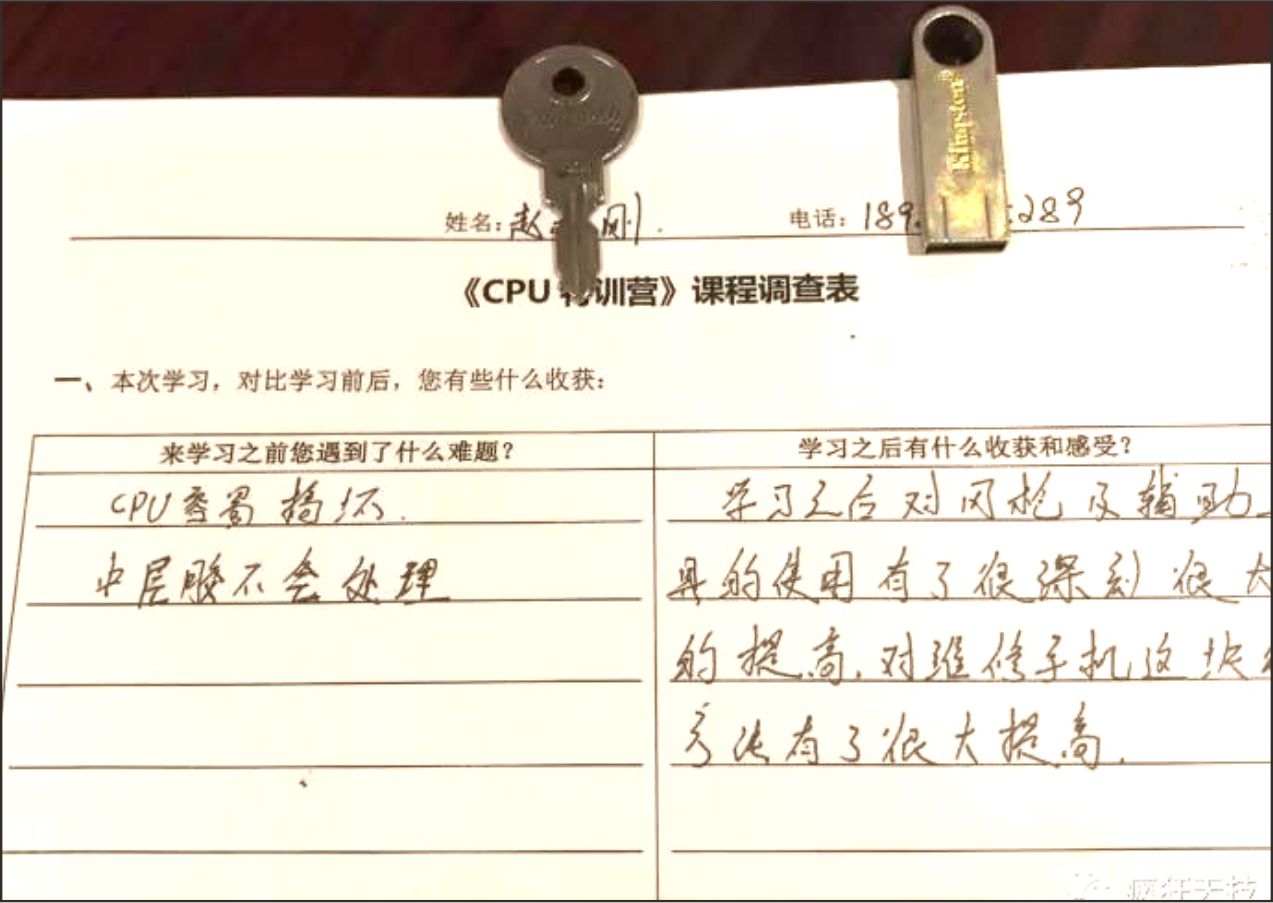 Kingston
姓名：赵 刚. 电话：189. 289
《CPU 特训营》课程调查表
一、本次学习，对比学习前后，您有些什么收获：
来学习之前您遇到了什么难题？
CPU容易搞坏.
中层胶不会处理
学习之后有什么收获和感受？
学习之后对风枪及辅助
具的使用有了很深刻很大
的提高.对维修手机这块
方法有了很大提高.